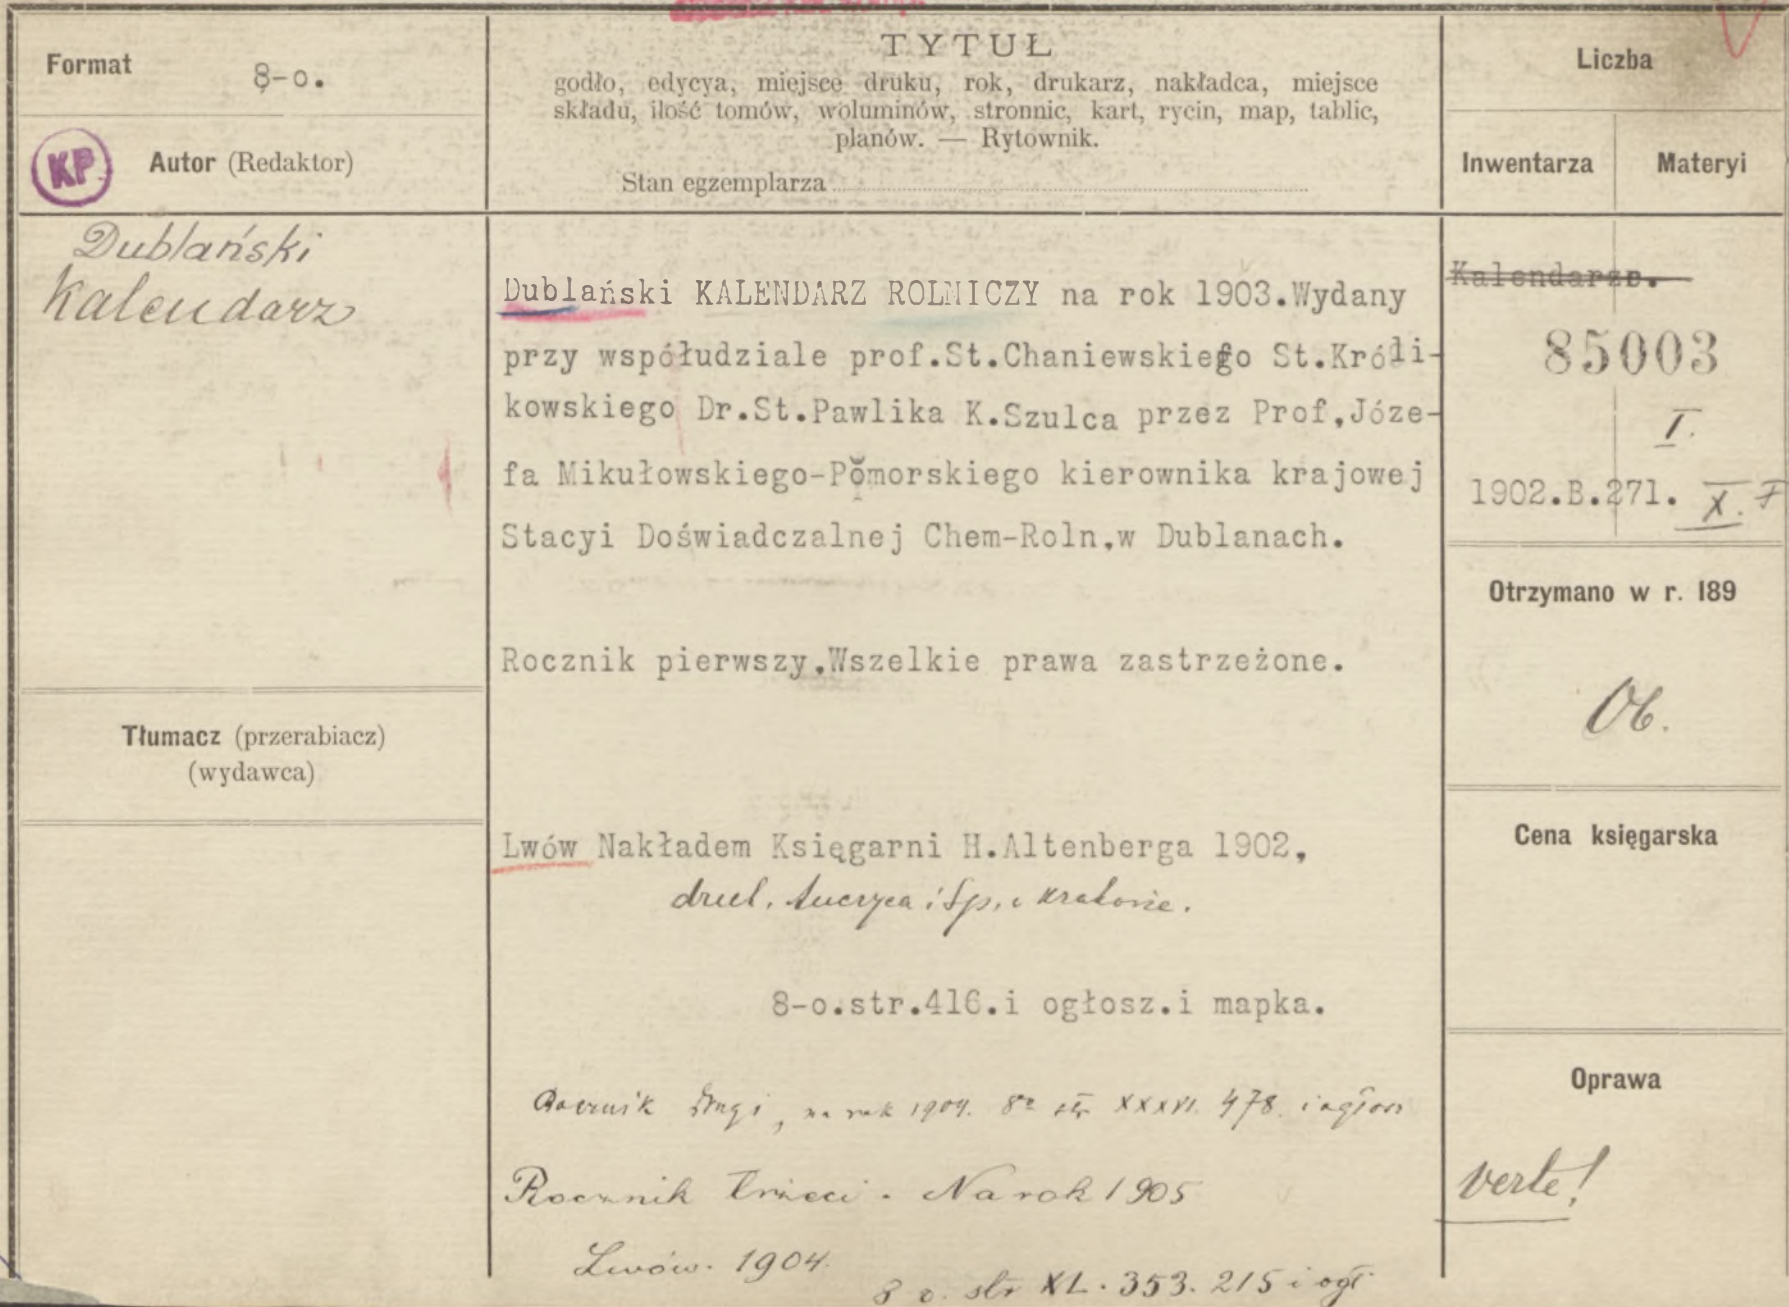 Format
8-o.
KP
Autor (Redaktor)
TYTUŁ
godło, edycya, miejsce druku, rok, drukarz, nakładca, miejsce
składu, ilość tomów, woluminów, stronnic, kart, rycin, map, tablic,
planów. — Rytownik.
Stan egzemplarza
Liczba
Inwentarza
Materyi
Dublański
Kalendarz
Dublański KALENDARZ ROLNICZY na rok 1903.Wydany
przy współudziale prof.St.Chaniewskiego St.Króli-
kowskiego Dr.St.Pawlika K.Szulca przez Prof,Józe-
fa Mikułowskiego-Pomorskiego kierownika krajowej
Stacyi Doświadczalnej Chem-Roln,w Dublanach.
Rocznik pierwszy.Wszelkie prawa zastrzeżone.
Lwów Nakładem Księgarni H.Altenberga 1902,
druk. Anczyca i Sp. w Krakowie.
8-o.str.416.i ogłosz.i mapka.
Rocznik drugi, na rok 1904. 8º str XXXVI. 478. i ogłosz
Rocznik trzeci. Na rok 1905
Lwów. 1904.
8 o. str XL. 353. 215 i ogł.
Kalendarze.
85003
I.
1902.B.271. X. F
Otrzymano w r. 189
Ob.
Cena księgarska
Oprawa
verte!
Tłumacz (przerabiacz)
(wydawca)